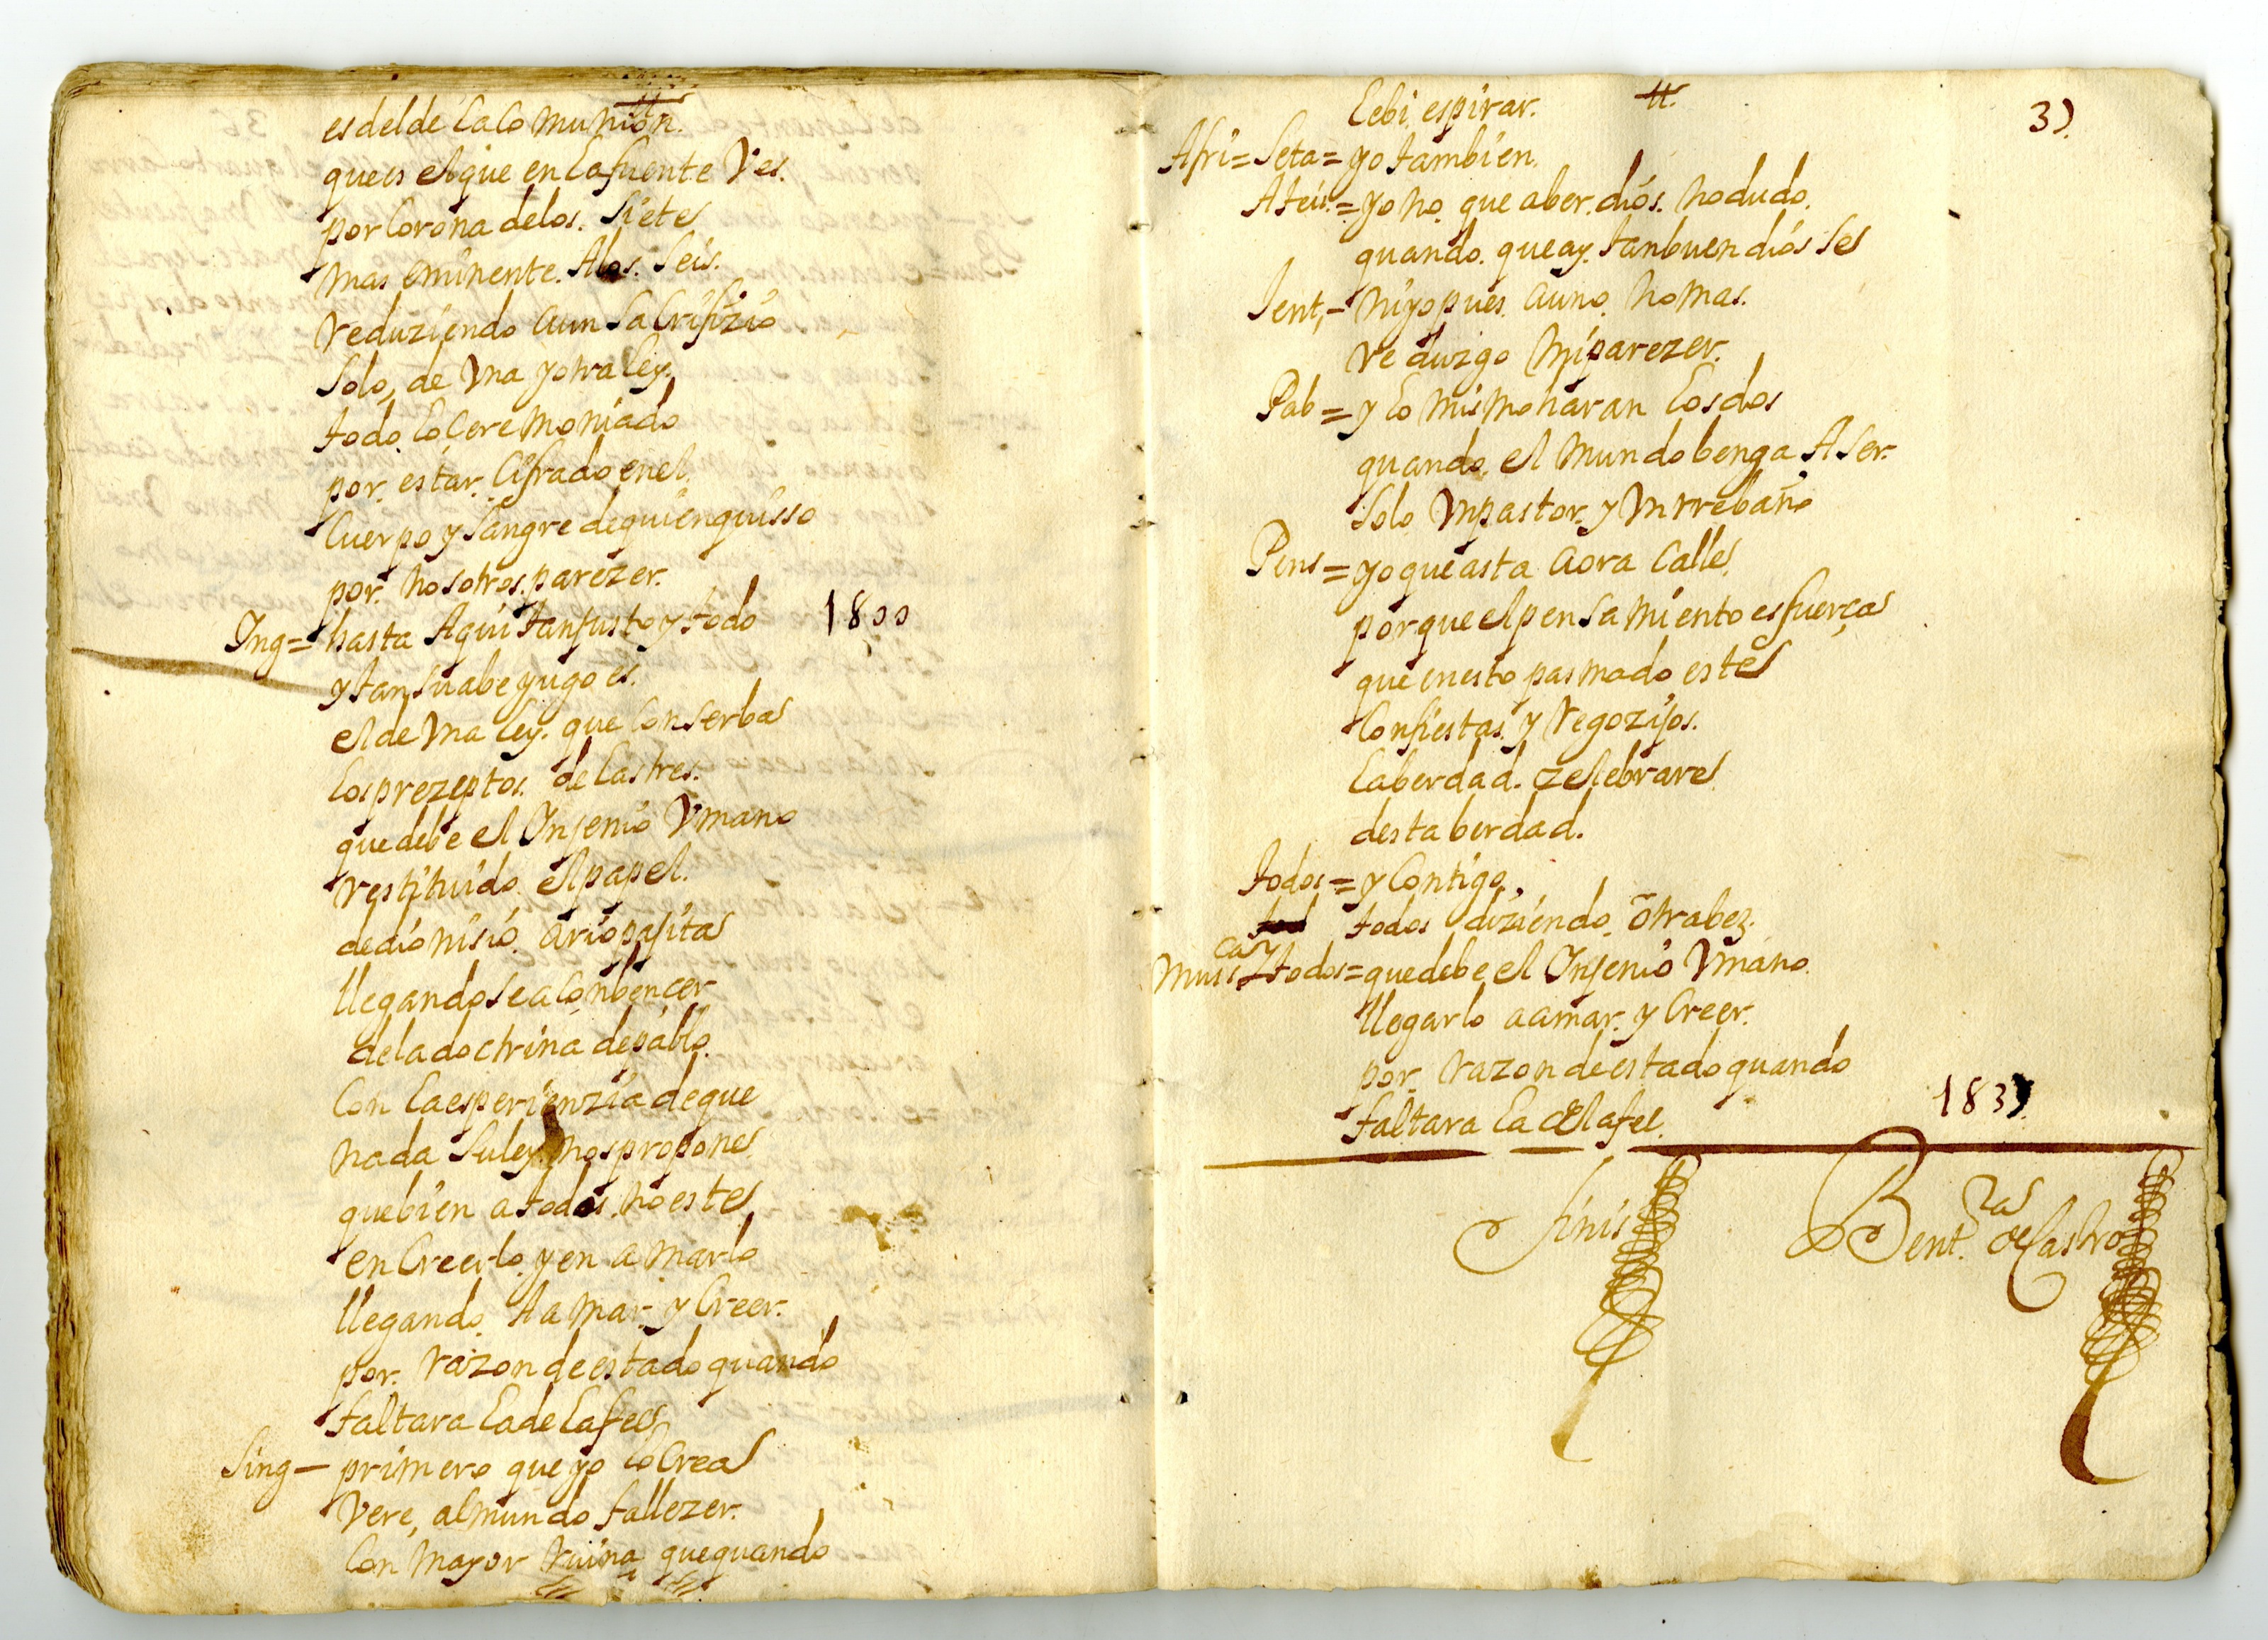 es del de la Comunion.
que es el que en la fuente Ves.
por Corona de los. Siete
mas eminente. A los. Seis.
reduziendo a un Sacrifizio
Solo, de Vna y otra ley.
todo. lo Ceremoniado
por. estar. Cifrado en el.
Cuerpo y Sangre de quien quisso
por. nosotros. parezer.
Ing= hasta Aqui tan justo y todo 1800
y tan suabe yugo es.
el de Vna ley. que Conserba
los prezeptos. de las tres.
que debe el Injenio Vmano
restituido. el papel.
de dionisio. ariopajita
llegandose a Conbencer
de la doctrina de pablo.
Con la esperienzia de que
nada Su ley. nos propone
que bien a todos. no este
en Creerlo. y en amarlo
llegando. A amar. y Creer.
por. razon de estado quando
faltara la de la fee
Sing— primero que yo lo Crea
Vere, al mundo fallezer.
Con mayor ruina que quando
37
le bi. espirar. tt.
Afri= Seta= yo tambien.
Ateis.= yo no. que aber. dios. no dudo.
quando. que ay. tan buen dios se
Jent,- ni yo pues. a uno. no mas.
reduzgo mi parezer.
Pab= y lo mismo haran los dos
quando. el mundo benga A Ser.
Solo Vn pastor. y Vn rrebaño
Pens= yo que asta aora Calle.
porque el pensamiento es fuerça
que en esto pasmado este
Con fiestas. y regozijos.
la berdad. zelebrare
desta berdad.
todos= y Contigo.
todos diziendo. otra bez.
Musica y todos= que debe el Injenio Vmano.
llegarlo a amar. y Creer.
por. razon de estado quando
faltara la de la fee. 1837.
finis Bent.ra de Castro